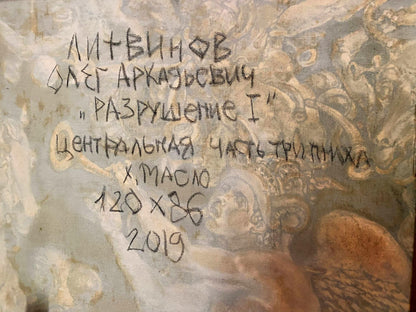 ЛИТВИНОВ
ОЛЕГ АРКАДЬЕВИЧ
„РАЗРУШЕНИЕ I"
ЦЕНТРАЛЬНАЯ ЧАСТЬ ТРИПТИХА
Х. МАСЛО
120 х 86
2019